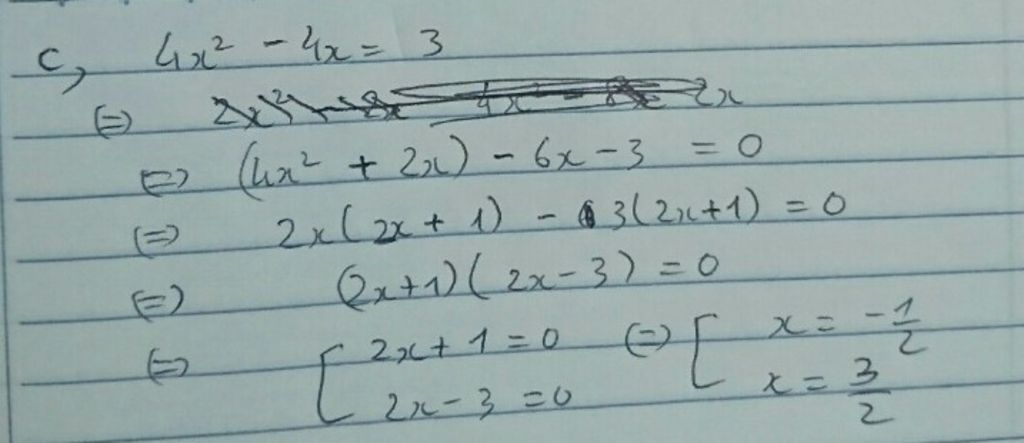 c, 4x² - 4x = 3
⇔ 2x
⇔ (4x² + 2x) - 6x - 3 = 0
⇔ 2x(2x + 1) - 3(2x+1) = 0
⇔ (2x+1)(2x-3) = 0
⇔ [ 2x + 1 = 0 ⇔ [ x = -1/2
2x - 3 = 0 x = 3/2